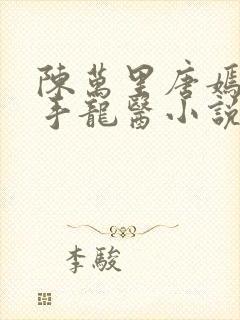 陳萬里唐嫣
手龍醫小說
李駿